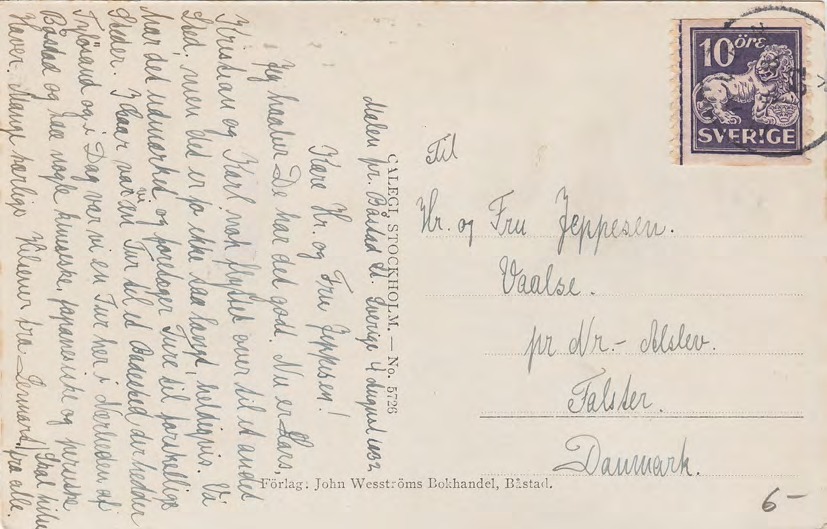 Malen pr. Båstad St. Sverige 4 August 1932
Kære Hr. og Fru Jeppesen!
Jeg haaber De har det godt. Nu er Lars,
Kristian og Karl nok flyttet over til et andet
Sted, men det er jo ikke saa langt, heldigvis. Vi
har det udmærket, og foretager Ture til forskellige
Steder. Igaar var vi en Tur til et Badested der hedder
Tylösand og i Dag var vi en Tur her i Nærheden af
Båstad og saa nogle kinesiske, japanesiske og persiske
Haver. Mange kærlige Hilsner fra
Skal hilse
fra alle.
CALEGI, STOCKHOLM. — No. 5726
Förlag: John Wesströms Bokhandel, Båstad.
10 öre
SVERIGE
Til
Hr. og Fru Jeppesen.
Vaalse.
pr Nr.- Alslev.
Falster.
Danmark.
6-